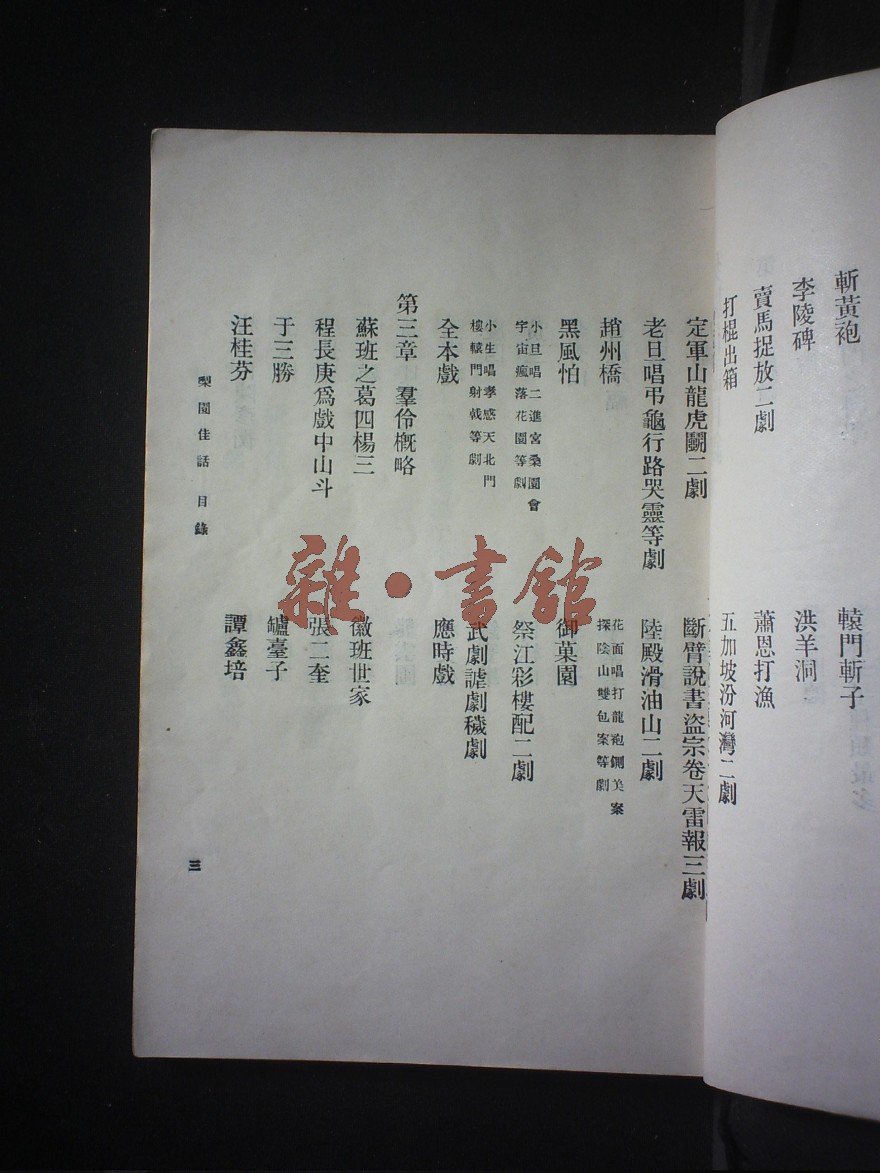 斬黃袍
轅門斬子
李陵碑
洪羊洞
賣馬捉放二劇
蕭恩打漁
打棍出箱
五加坡汾河灣二劇
定軍山龍虎鬭二劇
斷臂說書盜宗卷天雷報三劇
老旦唱弔龜行路哭靈等劇
陸殿滑油山二劇
趙州橋
花面唱打龍袍鍘美案
探陰山雙包案等劇
黑風怕
御菓園
小旦唱二進宮桑園會
宇宙瘋落花園等劇
祭江彩樓配二劇
小生唱孝感天北門
樓轅門射戟等劇
武劇謔劇穢劇
全本戲
應時戲
第三章 羣伶槪略
蘇班之葛四楊三
徽班世家
程長庚爲戲中山斗
張二奎
于三勝
鑪臺子
汪桂芬
譚鑫培
梨園佳話 目錄
三
雜·書館